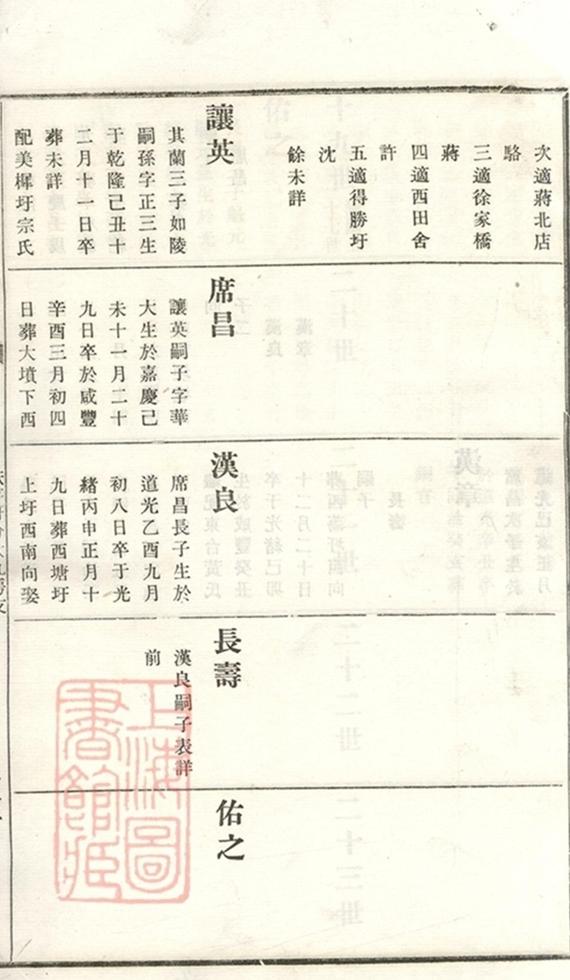 次適蔣北店
駱
三適徐家橋
蔣
四適西田舍
許
五適得勝圩
沈
餘未詳
讓英
其蘭三子如陵
嗣孫字正三生
于乾隆己丑十
二月十一日卒
葬未詳
配美樨圩宗氏
席昌
讓英嗣子字華
大生於嘉慶己
未十一月二十
九日卒於咸豐
辛酉三月初四
日葬大墳下西
漢良
席昌長子生於
道光乙酉九月
初八日卒于光
緒丙申正月十
九日葬西塘圩
上圩西南向娶
長壽
漢良嗣子表詳
前
佑之
上海圖
書館藏